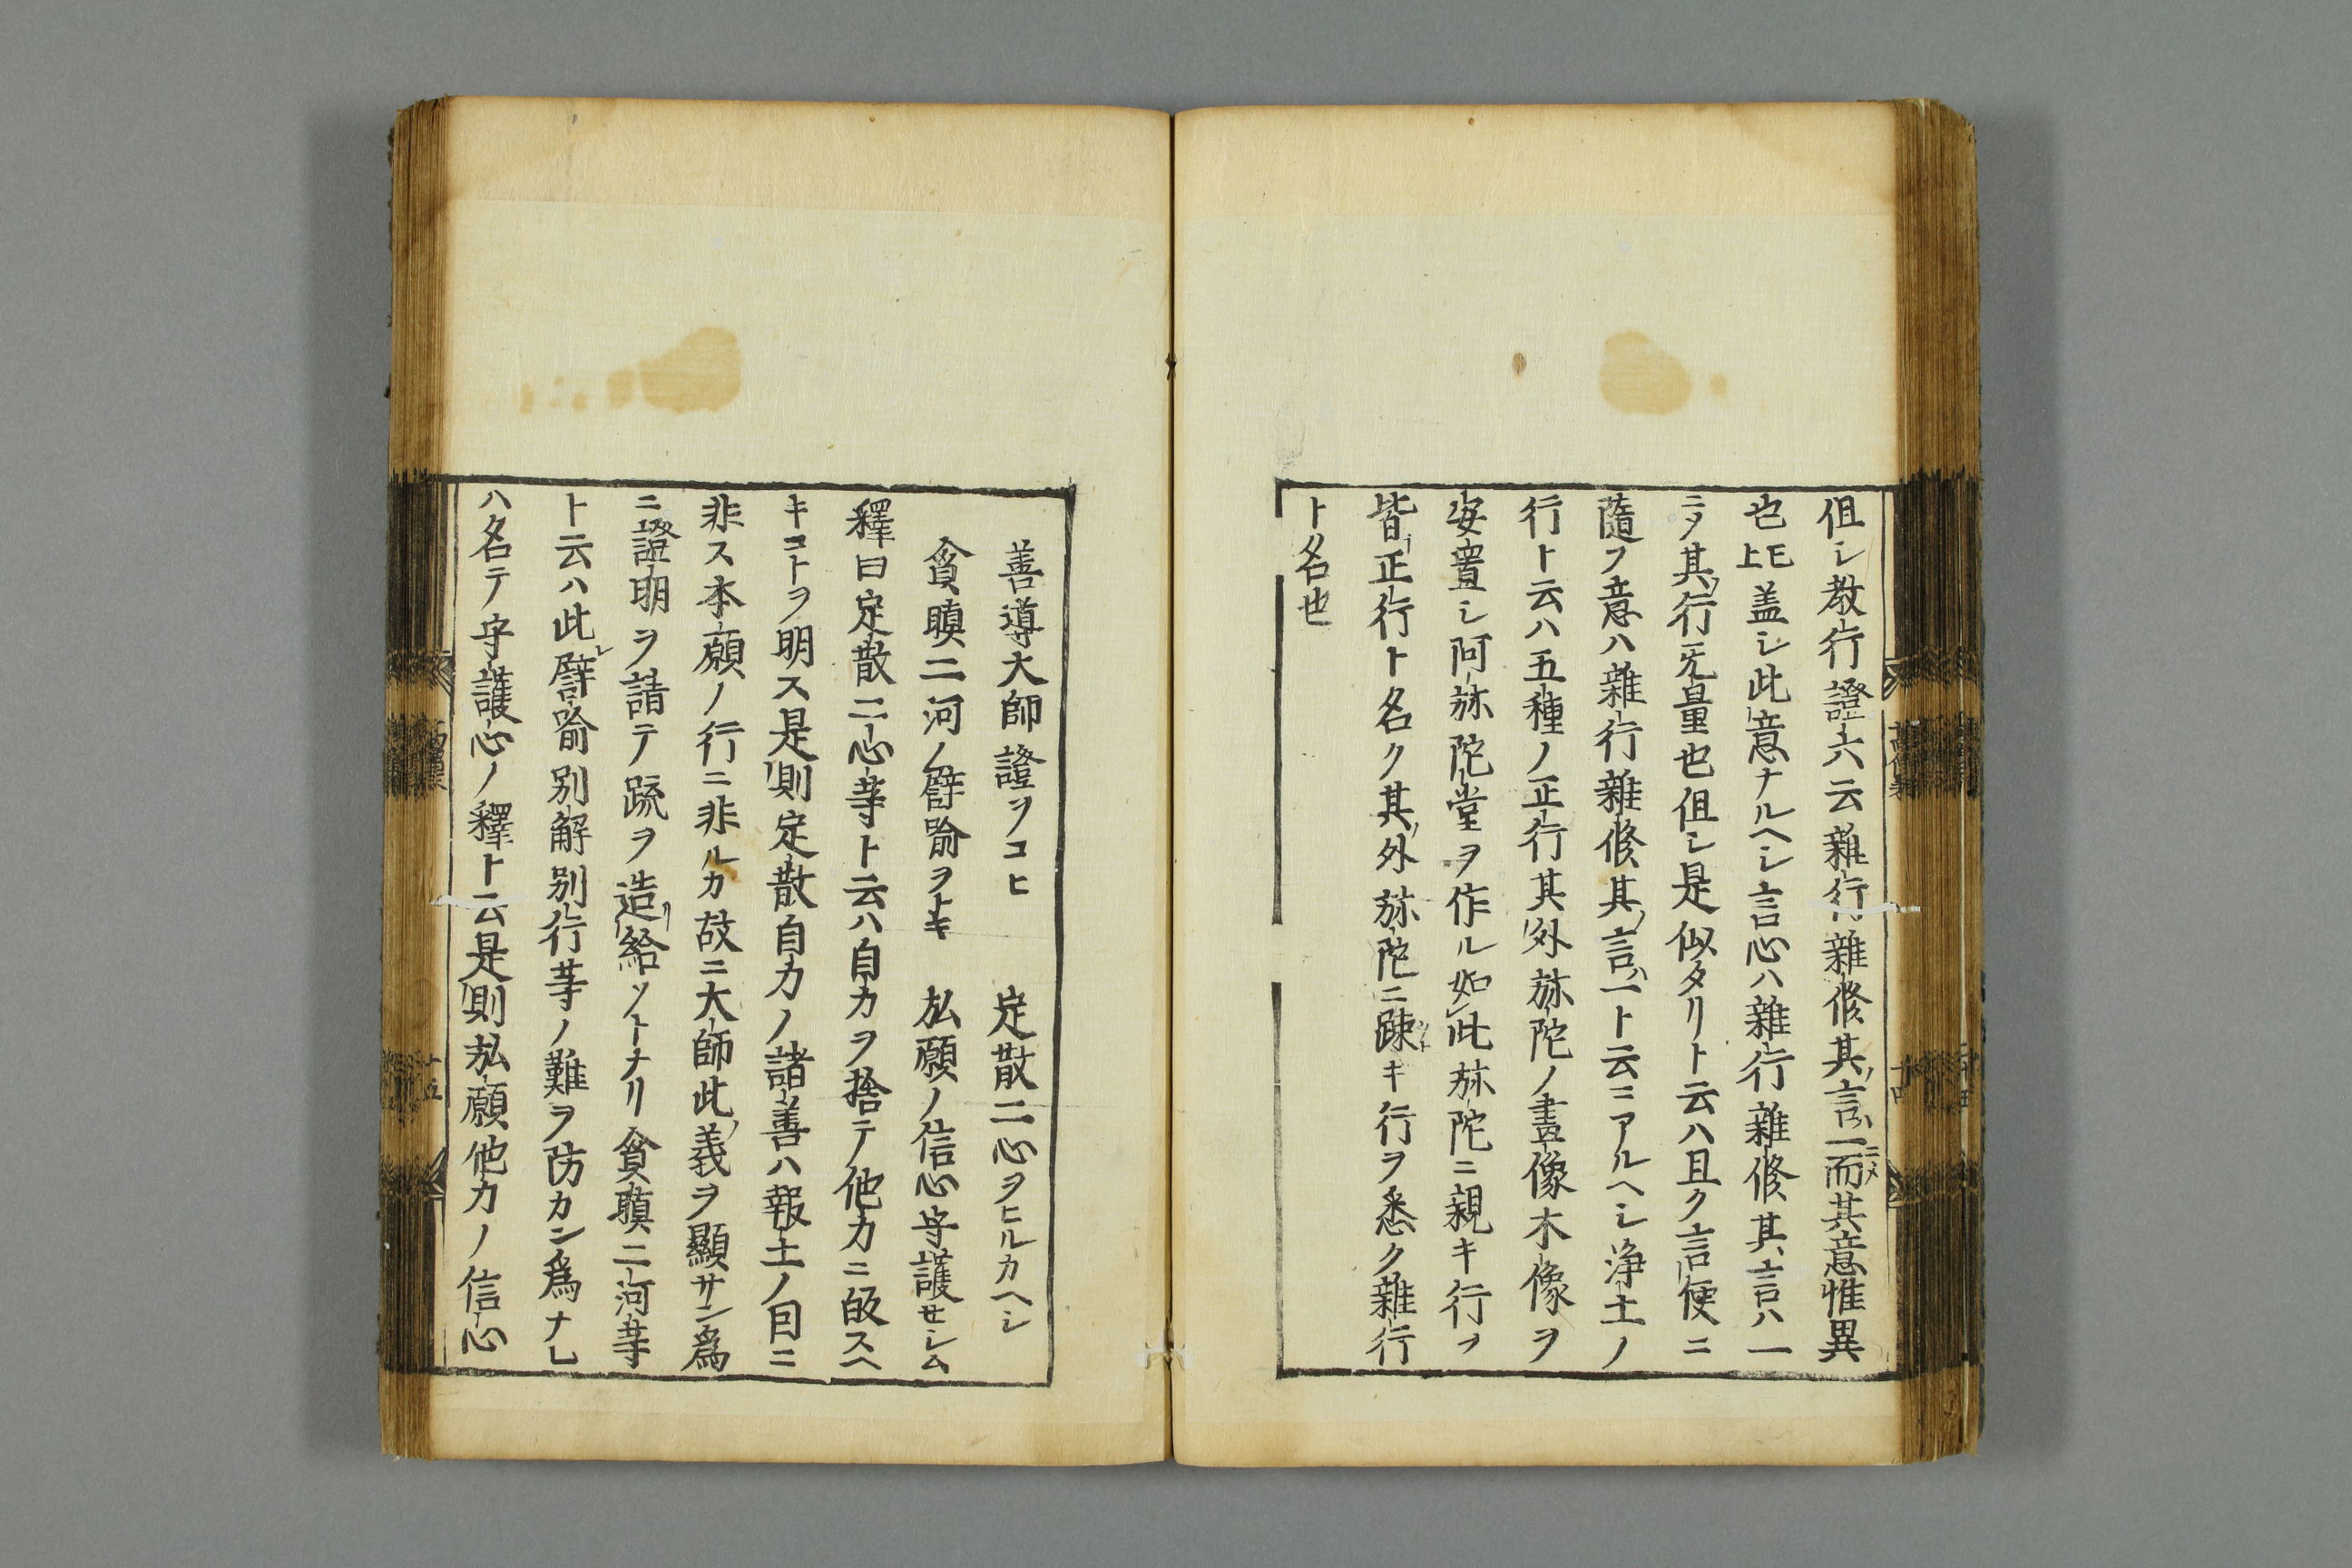 伹シ教行證六云雜行雜修其ノ言ハ一ニメ而其意惟異
也已上盖シ此意ナルヘシ言心ハ雜行雜修其ノ言ハ一
ニメ其ノ行无量也伹シ是似タリト云ハ且ク言便ニ
隨フ意ハ雜行雜修其ノ言ハ一ト云ニアルヘシ浄土ノ
行ト云ハ五種ノ正行其ノ外旀陀ノ畫像木像ヲ
安置シ阿旀陀堂ヲ作ル如此旀陀ニ親キ行ヲ
皆正行ト名ク其ノ外旀陀ニ踈キ行ヲ悉ク雜行
ト名也
善導大師證ヲコヒ 定散二心ヲヒルカヘシ
貪瞋二河ノ譬喻ヲトキ 弘願ノ信心守護セシム
釋曰定散二心等ト云ハ自力ヲ捨テ他力ニ皈スヘ
キコトヲ明ス是則定散自力ノ諸善ハ報土ノ因ニ
非ス本願ノ行ニ非ルカ故ニ大師此ノ義ヲ顯サン爲
ニ證明ヲ請テ疏ヲ造リ給ソトナリ貪瞋二河等
ト云ハ此レ譬喻別解別行等ノ難ヲ防カン爲ナレ
ハ名テ守護心ノ釋ト云是則弘願他力ノ信心